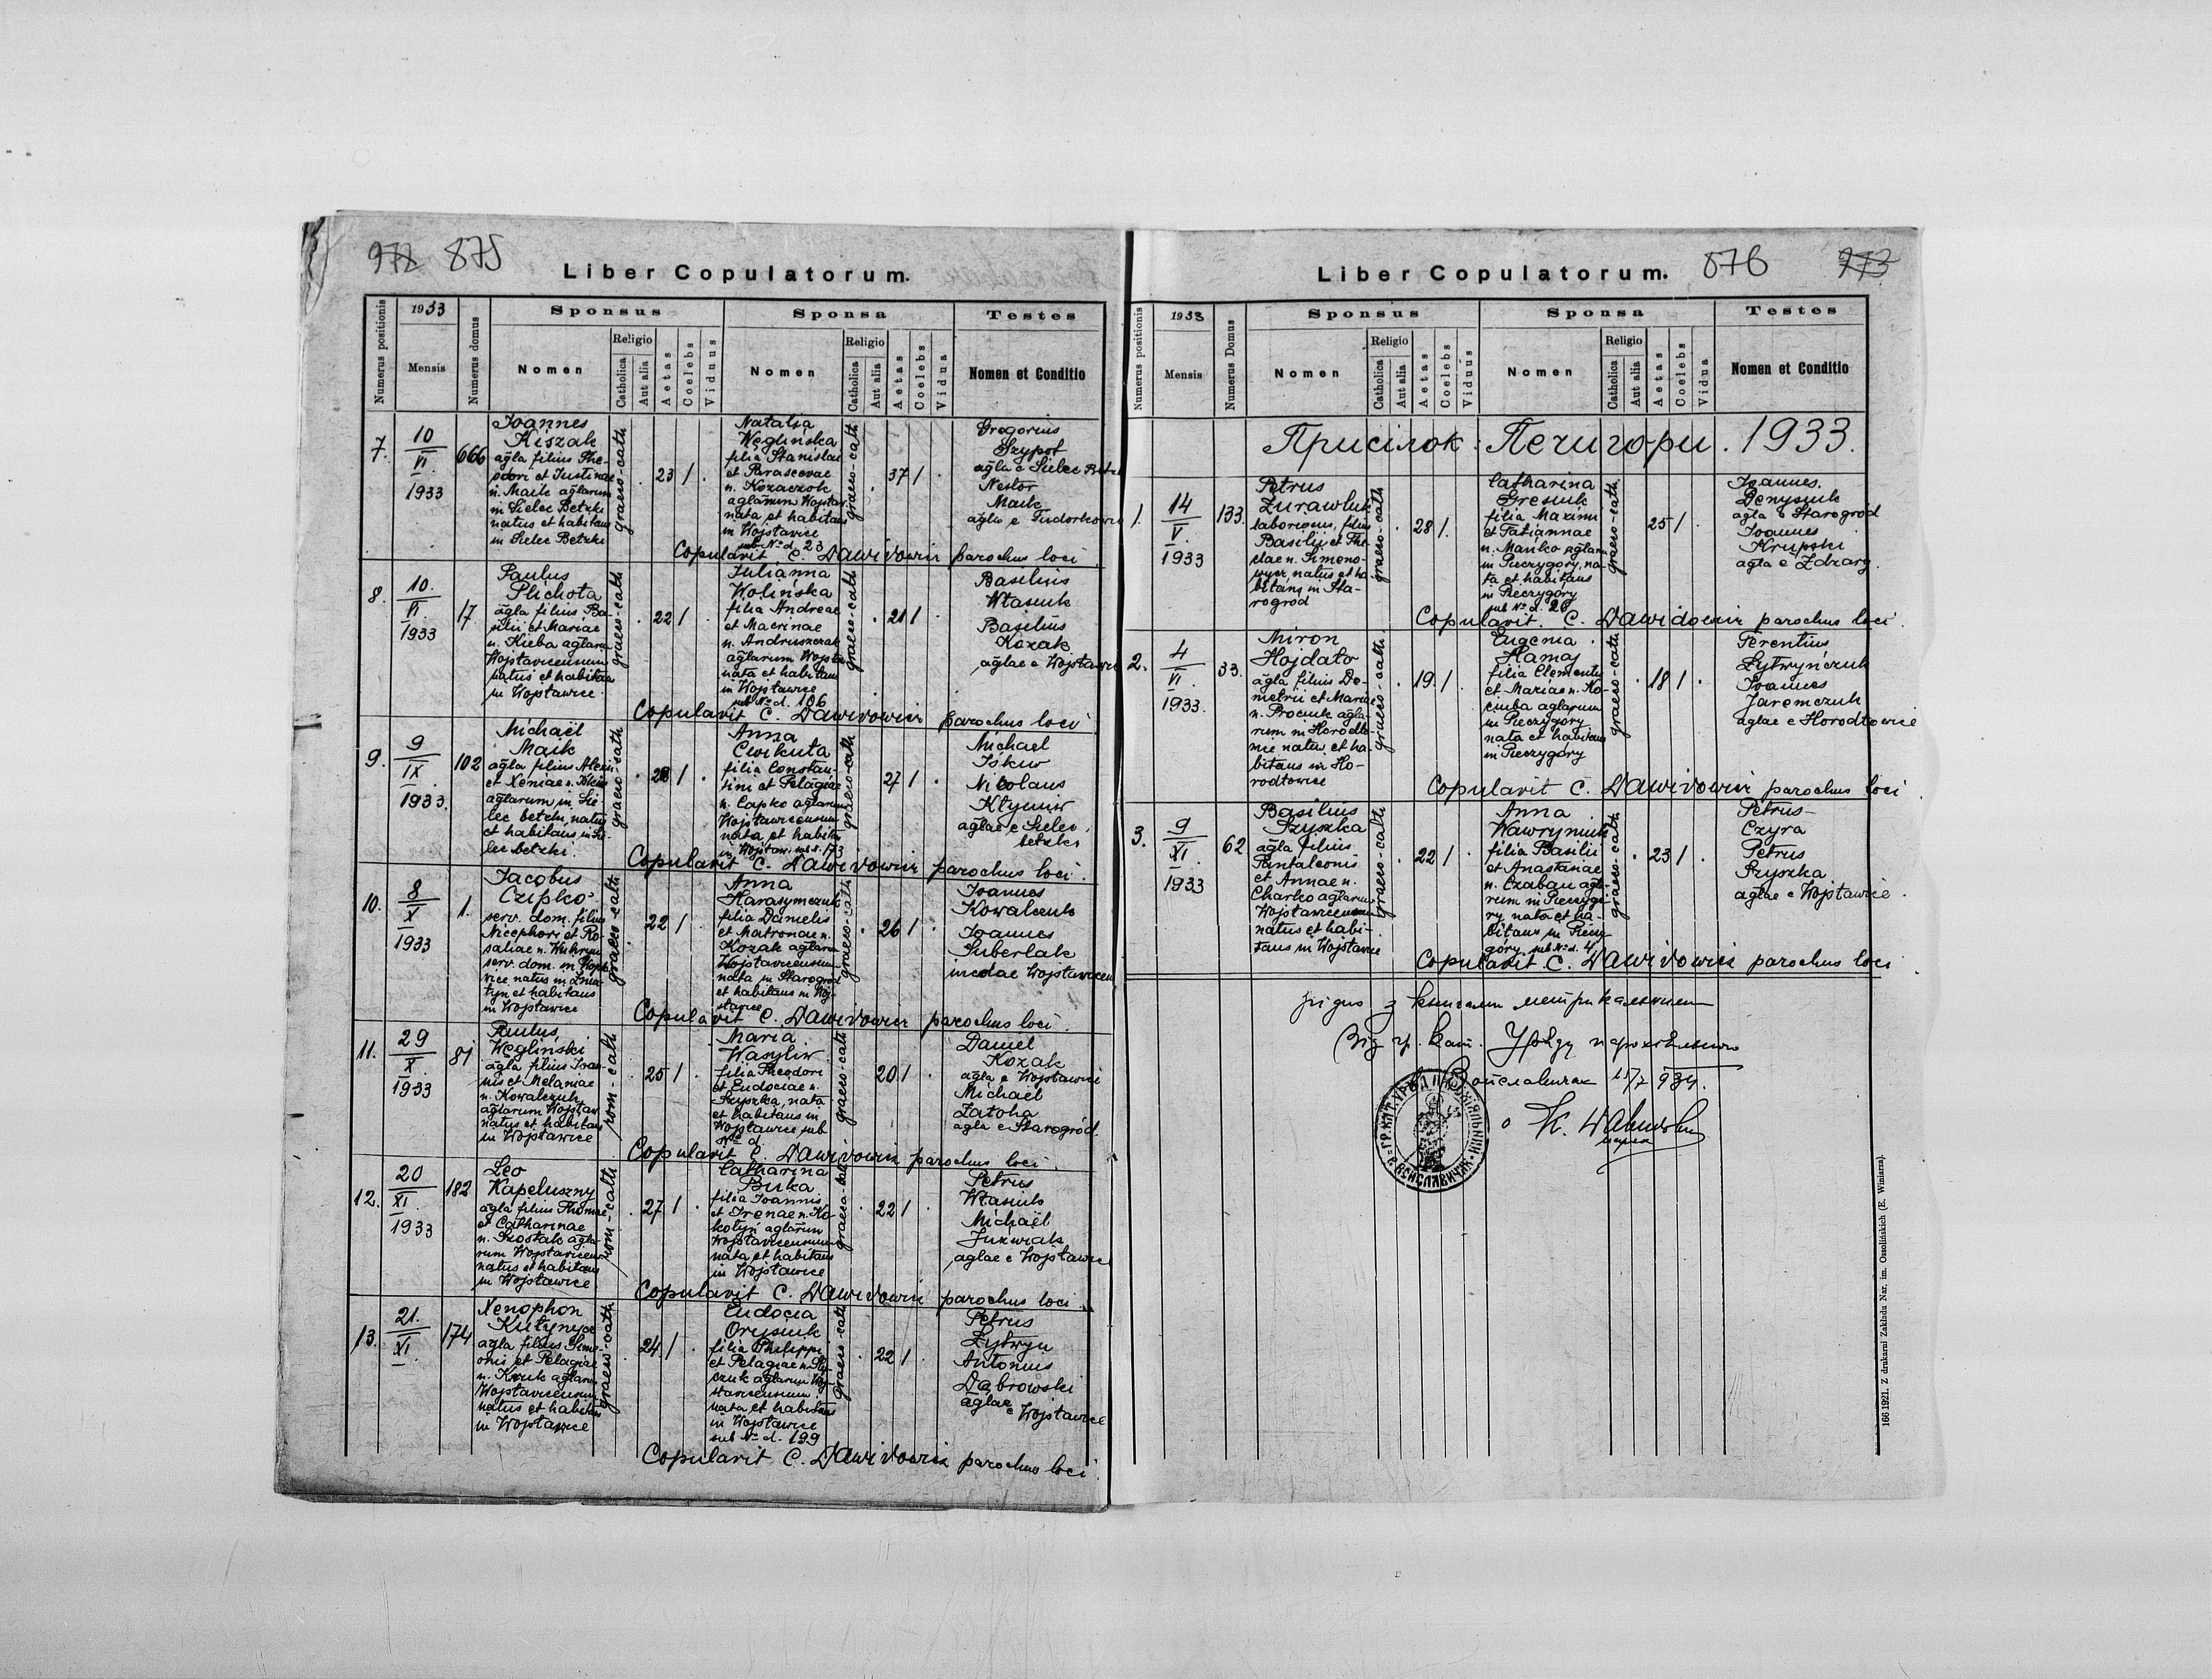 972 875
Liber Copulatorum.
Numerus positionis
1933
Mensis
Numerus domus
Sponsus
Nomen
Religio
Catholica
Aut alia
Aetas
Coelebs
Viduus
Sponsa
Nomen
Religio
Catholica
Aut alia
Aetas
Coelebs
Vidua
Testes
Nomen et Conditio
7.
10
VI
1933
666
Joannes
Kiszak
agla filius The-
odori et Justinae
n. Maik aglarum
in Sielec Betzki
natus et habitans
in Sielec Betzki
graeco-cath
23 1
Natalia
Węglińska
filia Stanislai
et Parascevae
n. Kozaczok
aglarum Wojsław
nata et habitans
in Wojsławice
sub No d. 23
graeco-cath
37 1
Gregorius
Szypot
agla e Sielec
Nestor
Maik
agla e
Copulavit C. Dawidowicz parochus loci
8.
10.
VI
1933
17.
Paulus
Plichota
agla filius Ba-
silii et Mariae
n. Kieba aglarum
Wojslavicensium
natus et habitans
in Wojsławice.
graeco-cath
22 1
Julianna
Wolińska
filia Andreae
et Macrinae
n. Andruszczak
aglarum Wojsła
nata et habitans
in Wojsławice
sub No d. 106
graeco-cath
21 1
Basilius
Własiuk
Basilius
Kozak
aglae e Wojsławice
Copulavit C. Dawidowicz parochus loci
9.
9
IX
1933.
102
Michaël
Maik
agla filius Alexii
et Xeniae n.
aglarum in Sie-
lec betzki, natus
et habitans in Sie-
lec betzki.
graeco-cath
28 1
Anna
Cwikuła
filia Constan-
tini et Pelagiae
n. Capko aglarum
Wojsławicensium
nata et habitans
in Wojsław. sub n. 173
graeco-cath
27 1
Michael
Iskiw
Nicolaus
Kłymiw
aglae e Sielec
betzki
Copulavit C. Dawidowicz parochus loci.
10.
8
X
1933
1.
Jacobus
Czipko
serv. dom. filius
Nicephori et Ro-
saliae n.
serv. dom. in Wojsła-
vice natus in
et habitans
in Wojsławice
graeco-cath
22 1
Anna
Harasymczuk
filia Danielis
et Matronae n.
Kozak aglarum
Wojslavicensium
nata in Starogród
et habitans in Woj-
sławice
graeco-cath
26 1
Joannes
Kowalczuk
Joannes
Suberlak
incolae Wojslavicen
Copulavit C. Dawidowicz parochus loci.
11.
29
X
1933
81
Paulus
Węgliński
agla filius Joan-
nis et Melaniae
n. Kowalczuk
aglarum Wojsław
natus et habitans
in Wojsławice
rom-cath
25 1
Maria
Wasyliw
filia Theodori
et Eudociae n.
Szyszka, nata
et habitans in
Wojsławice sub
No d.
graeco-cath
20 1
Daniel
Kozak
agla e Wojsławice
Michaël
Zatoha
agla e Starogród.
Copulavit C. Dawidowicz parochus loci
12.
20
XI
1933
182
Leo
Kapeluszny
agla filius Thomae
et Catharinae
n. Szostak agla-
rum Wojslavicens
natus et habitans
in Wojsławice
rom-cath
27 1
Catharina
Buka
filia Joannis
et Irenae n. Ko-
kotyn aglarum
Wojslavicensium
nata et habitans
in Wojsławice
graeco-cath
22 1
Petrus
Własiuk
Michaël
Juzwiak
aglae e Wojsławice
Copulavit C. Dawidowicz parochus loci
13.
21.
XI
174
Xenophon
Kułynycz
agla filius Sime-
onis et Pelagiae
n. Kruk aglarum
Wojslavicensium
natus et habitans
in Wojsławice
graeco-cath
24 1
Eudocia
Orysiuk
filia Philippi
et Pelagiae n.
aglarum Woj-
slavicensium
nata et habitans
in Wojsławice
sub No d. 199
graeco-cath
22 1
Petrus
Łytwyn
Antonius
Dąbrowski
aglae e Wojsławice
Copulavit C. Dawidowicz parochus loci.
Liber Copulatorum.
876 973
Numerus positionis
1933
Mensis
Numerus Domus
Sponsus
Nomen
Religio
Catholica
Aut alia
Aetas
Coelebs
Vidŭus
Sponsa
Nomen
Religio
Catholica
Aut alia
Aetas
Coelebs
Vidua
Testes
Nomen et Conditio
Присілок: Печигори. 1933.
1.
14
V.
1933
133.
Petrus
Żurawluk
laboriosus, filius
Basilii et The-
clae n. Simeno-
wycz, natus et ha-
bitans in Sta-
rogród
graeco-cath
28 1.
Catharina
Gresiuk
filia Maximi
et Tatiannae
n. Manko aglarum
in Pieczygóry, na-
ta et habitans
in Pieczygóry
sub No d. 20
graeco-cath.
25 1
Joannes
Denysiuk
agla e Starogród
Joannes
Krupski
agla e Zdżary.
Copulavit C. Dawidowicz parochus loci.
2.
4
VI.
1933.
33.
Miron
Hojdało
agla filius De-
metrii et Mariae
n. Prociuk agla-
rum in Horodło-
wice natus et ha-
bitans in Ho-
rodłowice
graeco-cath
19. 1
Eugenia
Hamaj
filia Clementis
et Mariae n. Ko-
ciuba aglarum
in Pieczygóry
nata et habitans
in Pieczygóry
graeco-cath
18 1
Terentius
Łytwyńczuk
Joannes
Jaremczuk
aglae e Horodłowice
Copulavit C. Dawidowicz parochus loci
3.
9
XI
1933
62
Basilius
Szyszka
agla filius
Pantaleonis
et Annae n.
Charko aglarum
Wojslavicensium
natus et habi-
tans in Wojsławice
graeco-cath
22 1
Anna
Wawryniuk
filia Basilii
et Anastasiae
n. Czaban agla-
rum in Pieczygó-
ry, nata et ha-
bitans in Pieczy-
góry sub No d. 4.
graeco-cath
23 1
Petrus
Czyra
Petrus
Szyszka
aglae e Wojsławice.
Copulavit C. Dawidowicz parochus loci
згідно з книгами метрикальними
Від гр. кат. Уряду парохіяльного
Войславичах 15/7 934.
166 1921. Z drukarni Zakładu Nar. im. Ossolińskich (E. Winiarza).